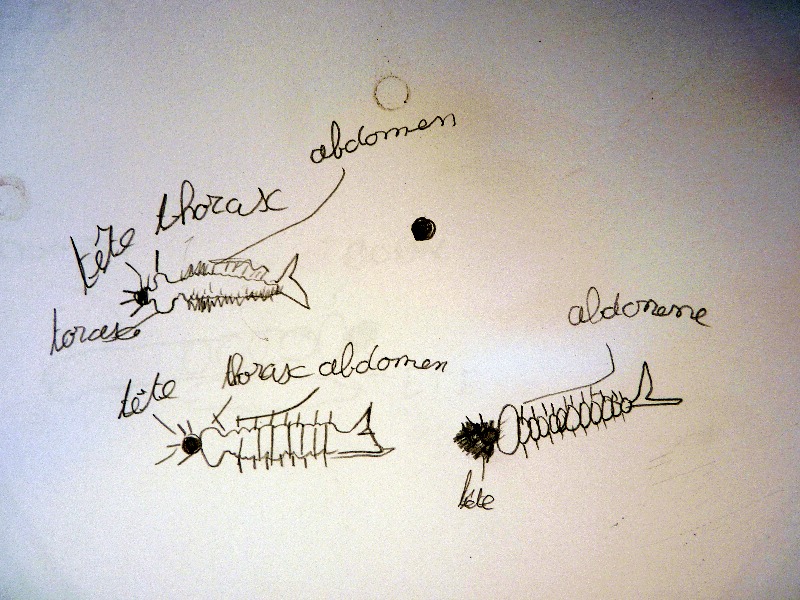 abdomen
tête thorax
torax
tête thorax abdomen
abdomene
tête